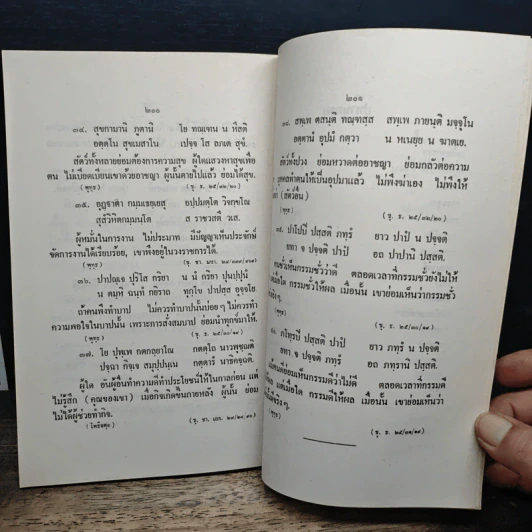 ๒๐๐
๓๔. สุขกามานิ ภูตานิ โย ทณฺเฑน น หึสติ
อตฺตโน สุขเมสาโน เปจฺจ โส ลภเต สุขํ.
สัตว์ทั้งหลายย่อมต้องการความสุข ผู้ใดแสวงหาสุขเพื่อ
ตน ไม่เบียดเบียนเขาด้วยอาชญา ผู้นั้นตายไปแล้ว ย่อมได้สุข.
(พุทฺธ) (ขุ. ธ. ๒๕/๓๒/๒๐)
๓๕. อุฏฺฐาตา กมฺมเธยฺเยสุ อปฺปมตฺโต วิจกฺขโณ
สุสํวิหิตกมฺมนฺโต ส ราชวสตึ วเส.
ผู้หมั่นในการงาน ไม่ประมาท มีปัญญาเห็นประจักษ์
จัดการงานได้เรียบร้อย, เขาพึงอยู่ในวงราชการได้.
(พุทฺธ)
๓๖. ปาปญฺเจ ปุริโส กริยา น นํ กริยา ปุนปฺปุนํ
น ตมฺหิ ฉนฺทํ กยิราถ ทุกฺโข ปาปสฺส อุจฺจโย
ถ้าคนพึงทำบาป ไม่ควรทำบาปนั้นบ่อยๆ ไม่ควรทำ
ความพอใจในบาปนั้น เพราะการสั่งสมบาป ย่อมนำทุกข์มาให้.
(พุทฺธ) (ขุ. ธ. ๒๕/๓๐/๑๙)
๓๗. โย ปุพฺเพ กตกลฺยาโณ กตตฺโถ นาวพุชฺฌติ
ปจฺฉา กิจฺเจ สมุปฺปนฺเน กตฺตารํ นาธิคจฺฉติ.
ผู้ใด อันผู้อื่นทำความดีทำประโยชน์ให้ในกาลก่อน แต่
ไม่รู้สึก (คุณของเขา) เมื่อกิจเกิดขึ้นภายหลัง ผู้นั้น ย่อม
ไม่ได้ผู้ช่วยทำกิจ.
(โพธิสตฺต)
๒๐๑
๓๘. สพฺเพ ตสนฺติ ทณฺฑสฺส สพฺเพ ภายนฺติ มจฺจุโน
อตฺตานํ อุปมํ กตฺวา น หเนยฺย น ฆาตเย.
สัตว์ทั้งปวง ย่อมหวาดต่ออาชญา ย่อมกลัวต่อความ
บุคคลทำตนให้เป็นอุปมาแล้ว ไม่พึงฆ่าเอง ไม่พึงให้
(สัตว์อื่น)
(พุทฺธ) (ขุ. ธ. ๒๕/๓๒/๒๐)
ปาโปปิ ปสฺสติ ภทฺรํ ยาว ปาปํ น ปจฺจติ
ยทา จ ปจฺจติ ปาปํ อถ ปาปานิ ปสฺสติ.
เห็นกรรมชั่วว่าดี ตลอดเวลาที่กรรมชั่วยังไม่ให้
กรรมชั่วให้ผล เมื่อนั้น เขาย่อมเห็นว่ากรรมชั่ว
(ขุ. ธ. ๒๕/๓๐/๑๙)
ภโทฺรปิ ปสฺสติ ปาปํ ยาว ภทฺรํ น ปจฺจติ
ยทา จ ปจฺจติ ภทฺรํ อถ ภทฺรานิ ปสฺสติ.
เห็นกรรมดีว่าไม่ดี ตลอดเวลาที่กรรมดี
แต่เมื่อใด กรรมดีให้ผล เมื่อนั้น เขาย่อมเห็นว่า
(ขุ. ธ. ๒๕/๓๑/๑๙)